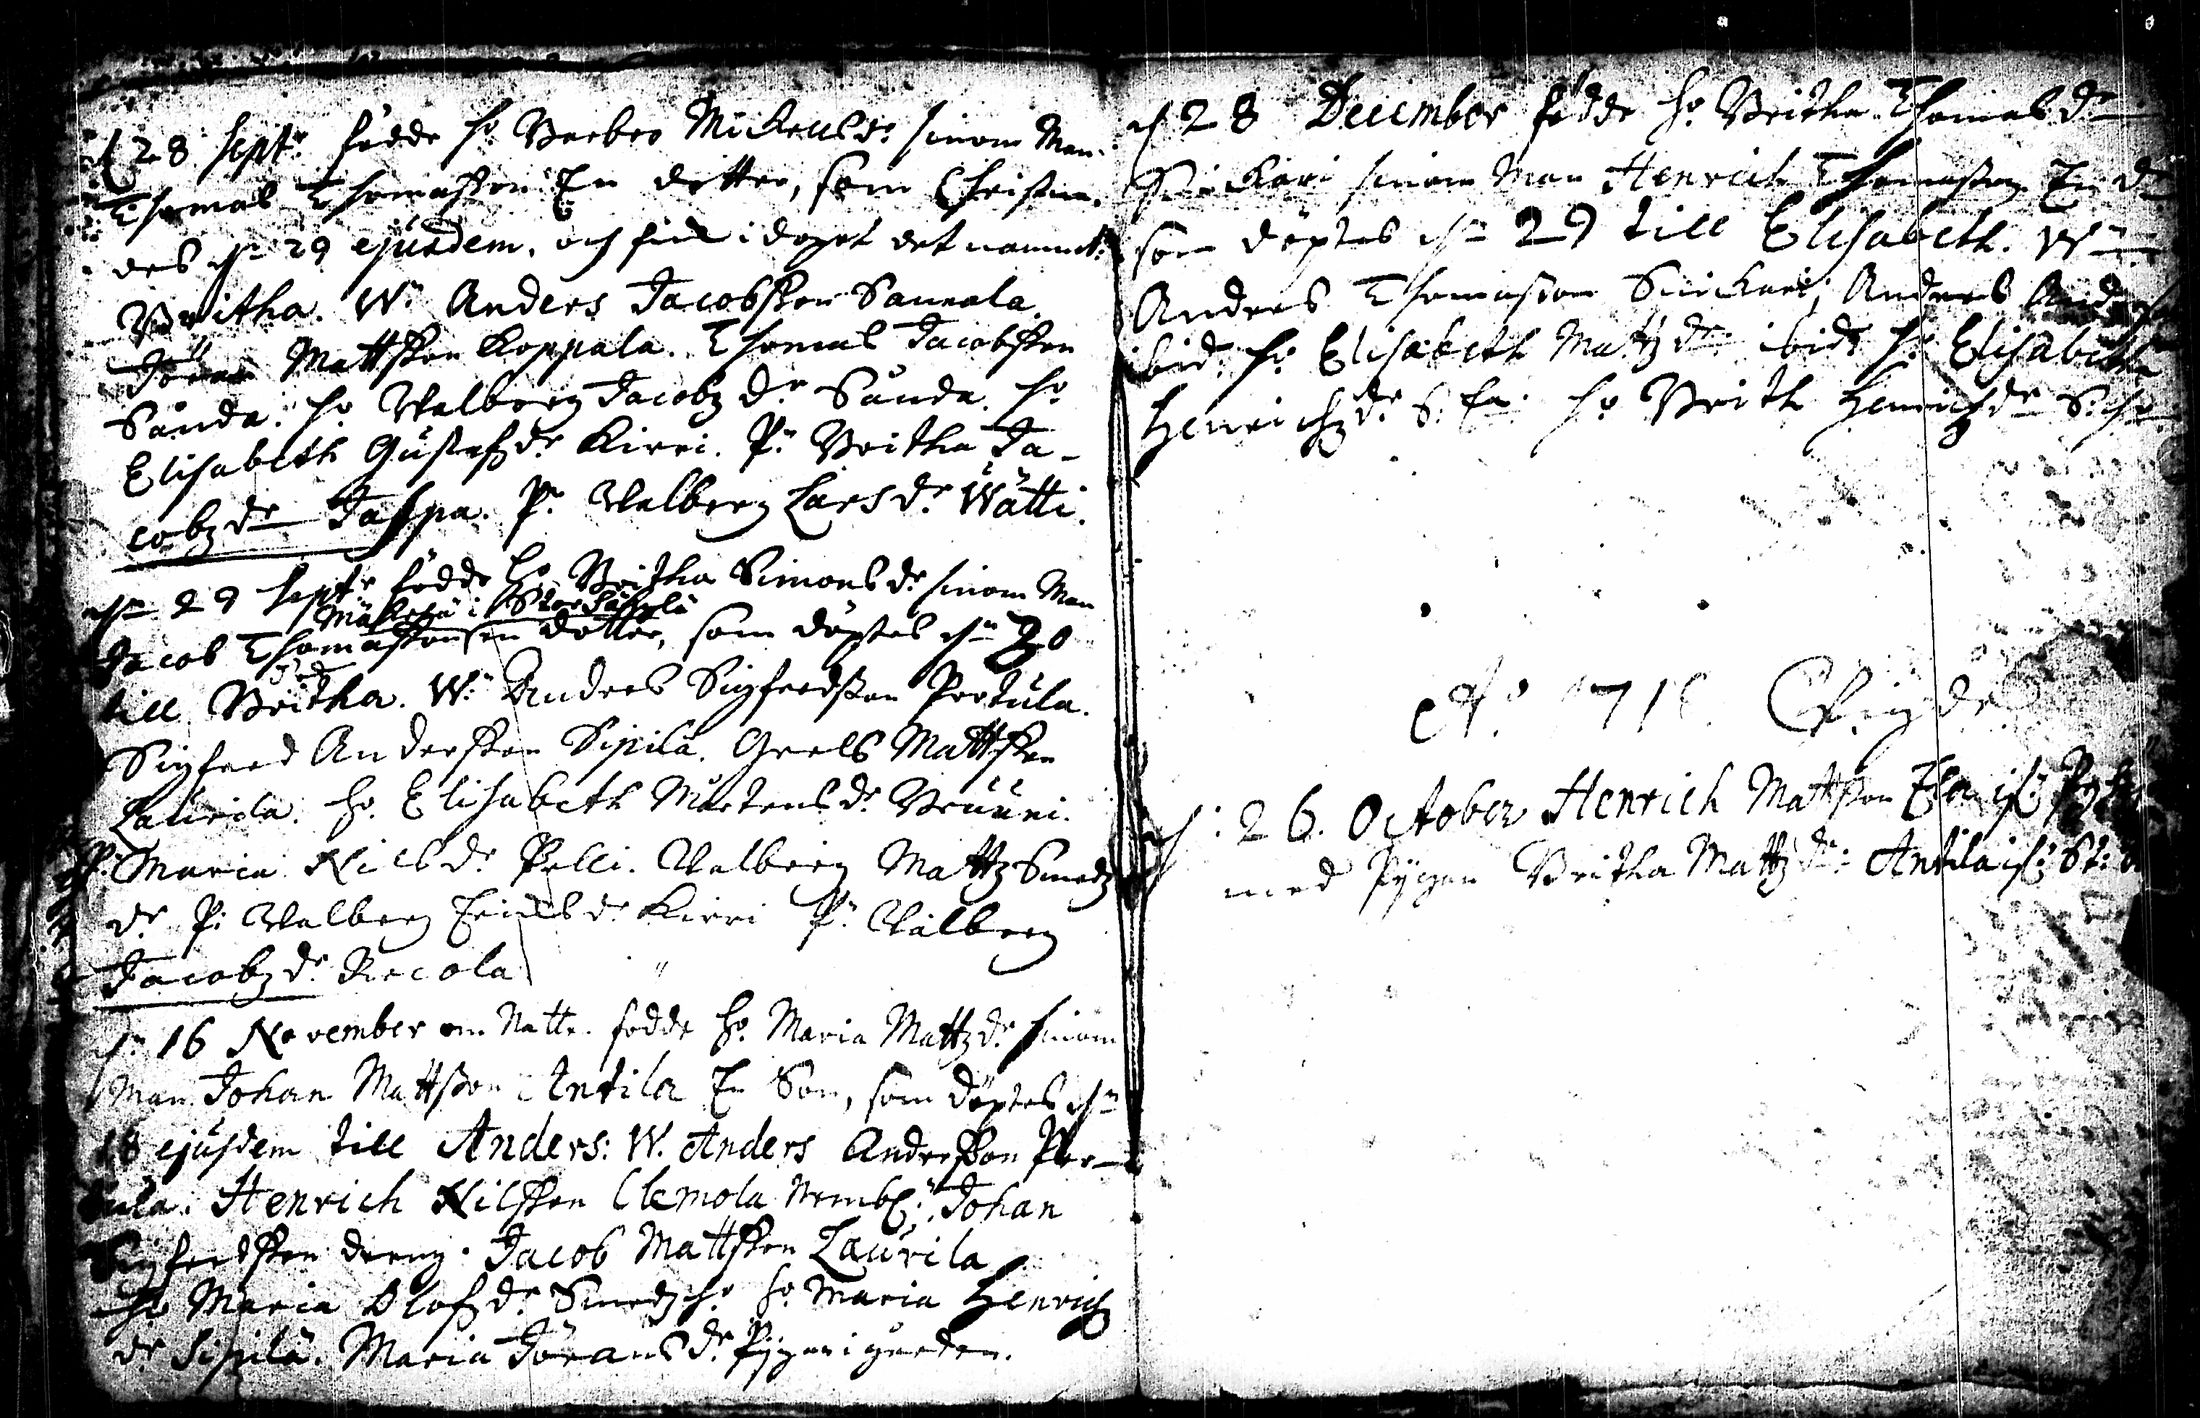 d 28 Septr: födde h: Barbro Mickelsdr: sinom Man
Thomas Thomasson En dotter, som Christna-
des dn 29 ejusdem, och fick i dopet det namnet
Britha. W: Anders Jacobsson Sannala
Jöran Mattsson Koppala. Thomas Jacobsson
Sånda. h: Valborg Jacobz dr Sånda. h:
Elisabeth Gustafsdr Kirri. P: Britha Ja-
cobz dr Jaspa. P: Valborg Larsdr Wätti.
dn 29 Septr födde h: Britha Simonsdr sinom Man
Jacob Thomasson en dotter, som döptes dn 30
till Britha. W: Anders Sigfredsson Pertula.
Sigfred Andersson Sipilä. Greels Mattsson
Laurila. h: Elisabeth Mårtensdr
P: Maria Nilsdr Pelli. Valborg Mattz Smedz
dr P: Valborg Erichsdr Kirri P: Valborg
Jacobz dr Recola
dn 16 November om Natte. födde h: Maria Mattz dr sinom
Man Johan Mattsson Antila En Son, som döptes dn
18 ejusdem till Anders: W. Anders Andersson Per-
tula. Henrich Nilsson Clemola Johan
Sigfredsson dreng. Jacob Mattsson Laurila
h: Maria Olofsdr h: Maria Henrichz
dr Sipilä. Maria Jöransdr Pigan i gården.
d 28 December födde h: Britha Thomasdr
Sinckari sinom Man Henrich Thomasson En dr
som döptes dn 29 till Elisabeth. W:
Anders Thomasson Sinckari, Anders
ibid: h: Elisabeth Mattz dr ibid: h: Elisabeth
Henrichz dr h: Brith Henrichz dr
Ao 171 Wigde
d: 26. October Henrich Mattsson
med Pigan Britha Mattz dr: Antila